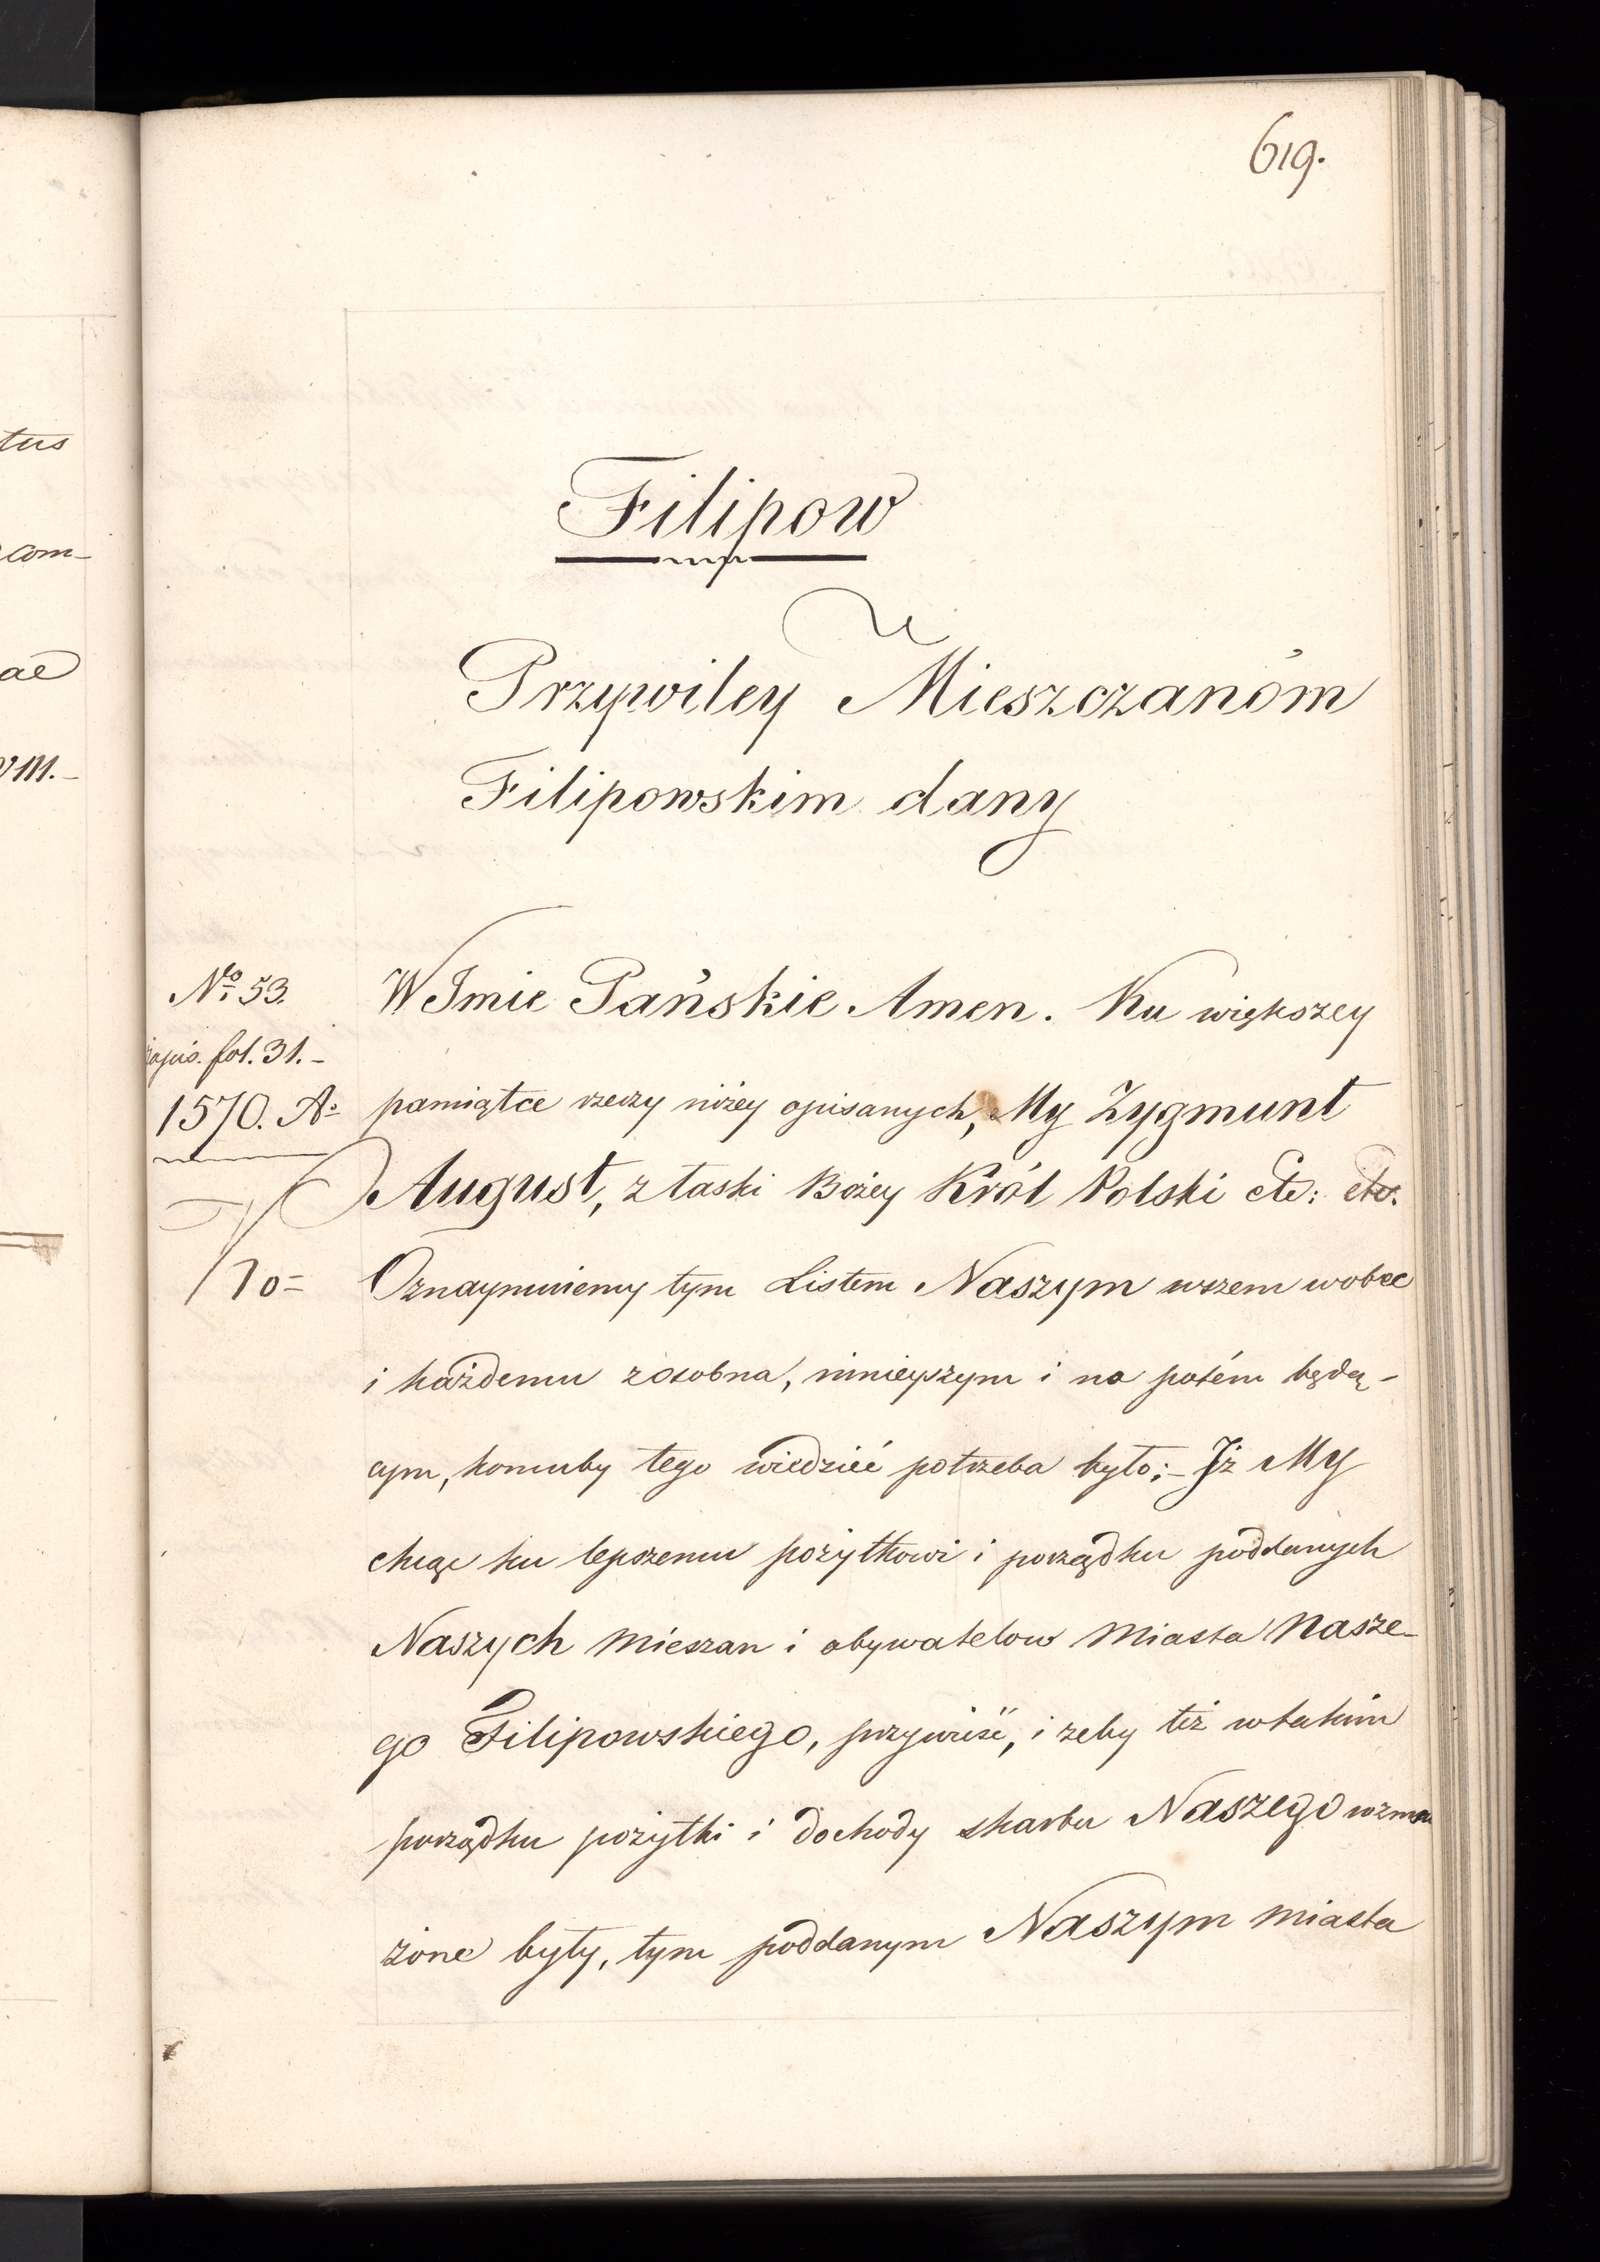 619.
tus
com-
ae
vm.-
Filipow
Przywiley Mieszczanóm
Filipowskim dany
No 53.
zapis. fol. 31.-
1570. Ao
W Imie Pańskie Amen. Ku większey
pamiątce rzeczy niżéy opisanych, My Zygmunt
August, z łaski Bożey Król Polski etc: etc.
Oznaymuiemy tym Listem Naszym wszem wobec
i każdemu zosobna, ninieyszym i na potém będą-
cym, komuby tego wiedzieć potrzeba było;- Iż My
chcąc ku lepszemu pożytkowi i porządku poddanych
Naszych Mieszan i obywatelow Miasta Nasze-
go Filipowskiego, przywieść, i żeby też wtakim
porządku pożytki i dochody skarbu Naszego wzmo
żone były, tym poddanym Naszym miasta